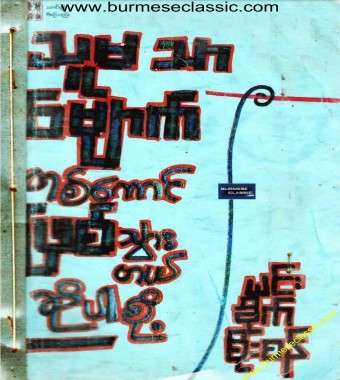 www.burmeseclassic.com
သူမ သာ
တစ်ကောင်
သွား
တယ်
ဆိုပါစို့
BURMESE
CLASSIC
မင်း
ခိုက်
စိုးစန်
www.burmeseclassic.com